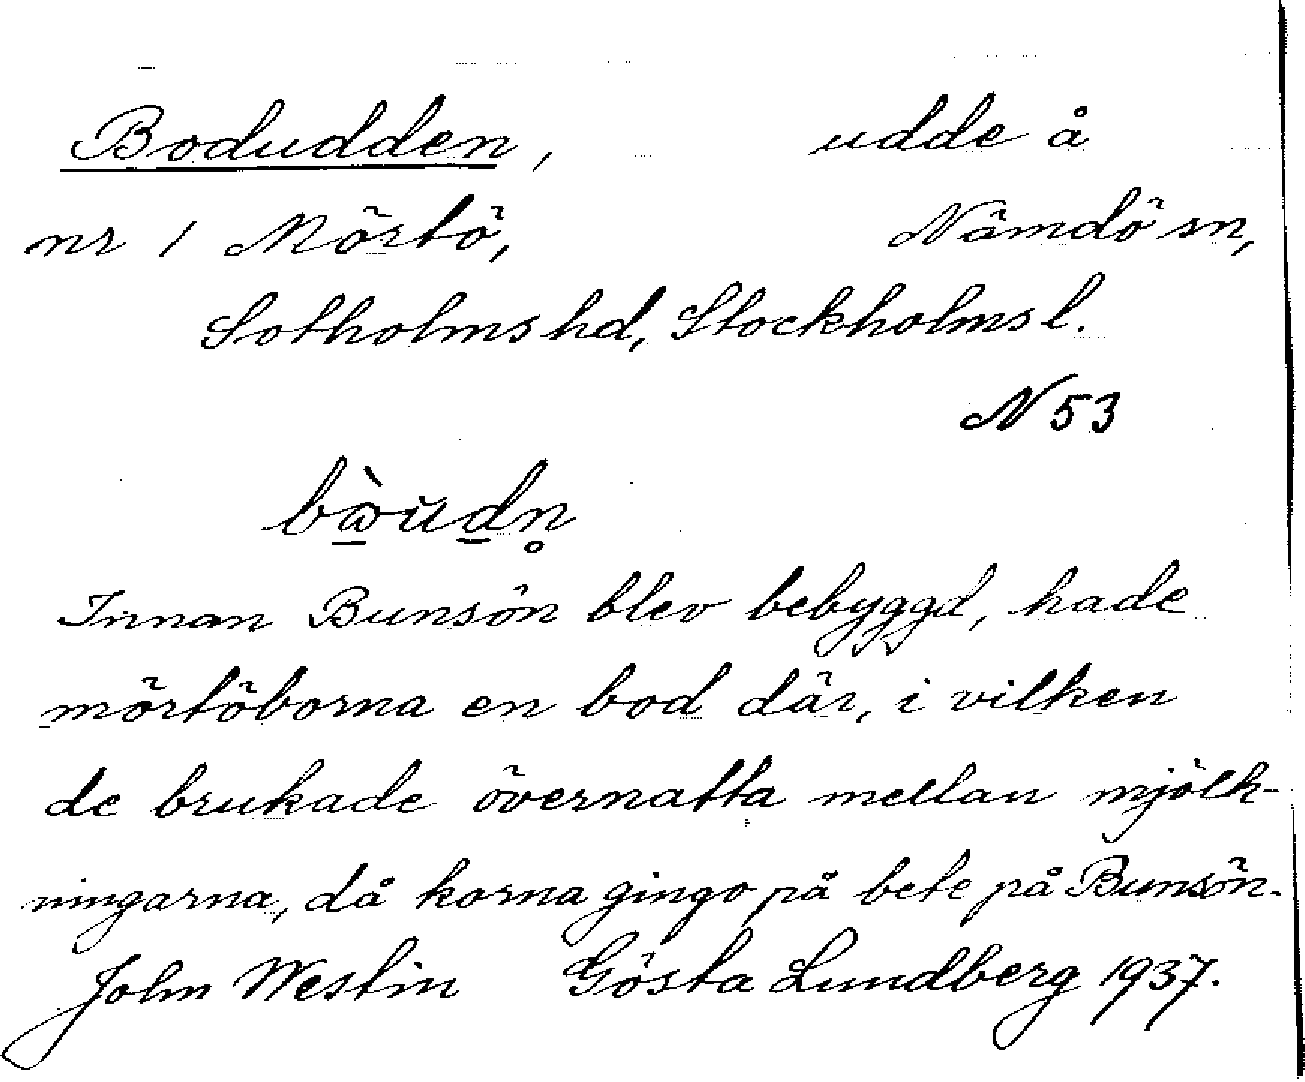 Bodudden, udde å
nr 1 Mörtö, Nämdö sn,
Sotholms hd, Stockholms l.
N 53
Innan Bunsön blev bebyggd, hade
mörtöborna en bod där, i vilken
de brukade övernatta mellan mjölk-
ningarna, då korna gingo på bete på Bunsön.
John Westin Gösta Lundberg 1937.